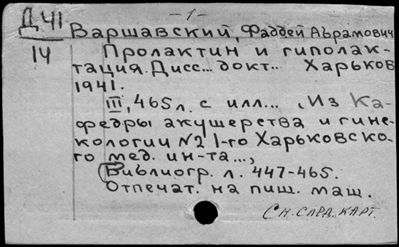 Д 41
14
-1-
Варшавский, Фаддей Абрамович
Пролактин и гиполак-
тация. Дисс... докт.. Харьков
1941.
III, 465 л. с илл... (Из Ка-
федры акушерства и гине-
кологии №2 1-го Харьковско-
го мед. ин-та...,
Библиогр. л. 447-465.
Отпечат. на пиш. маш.
См. слвд. карт.